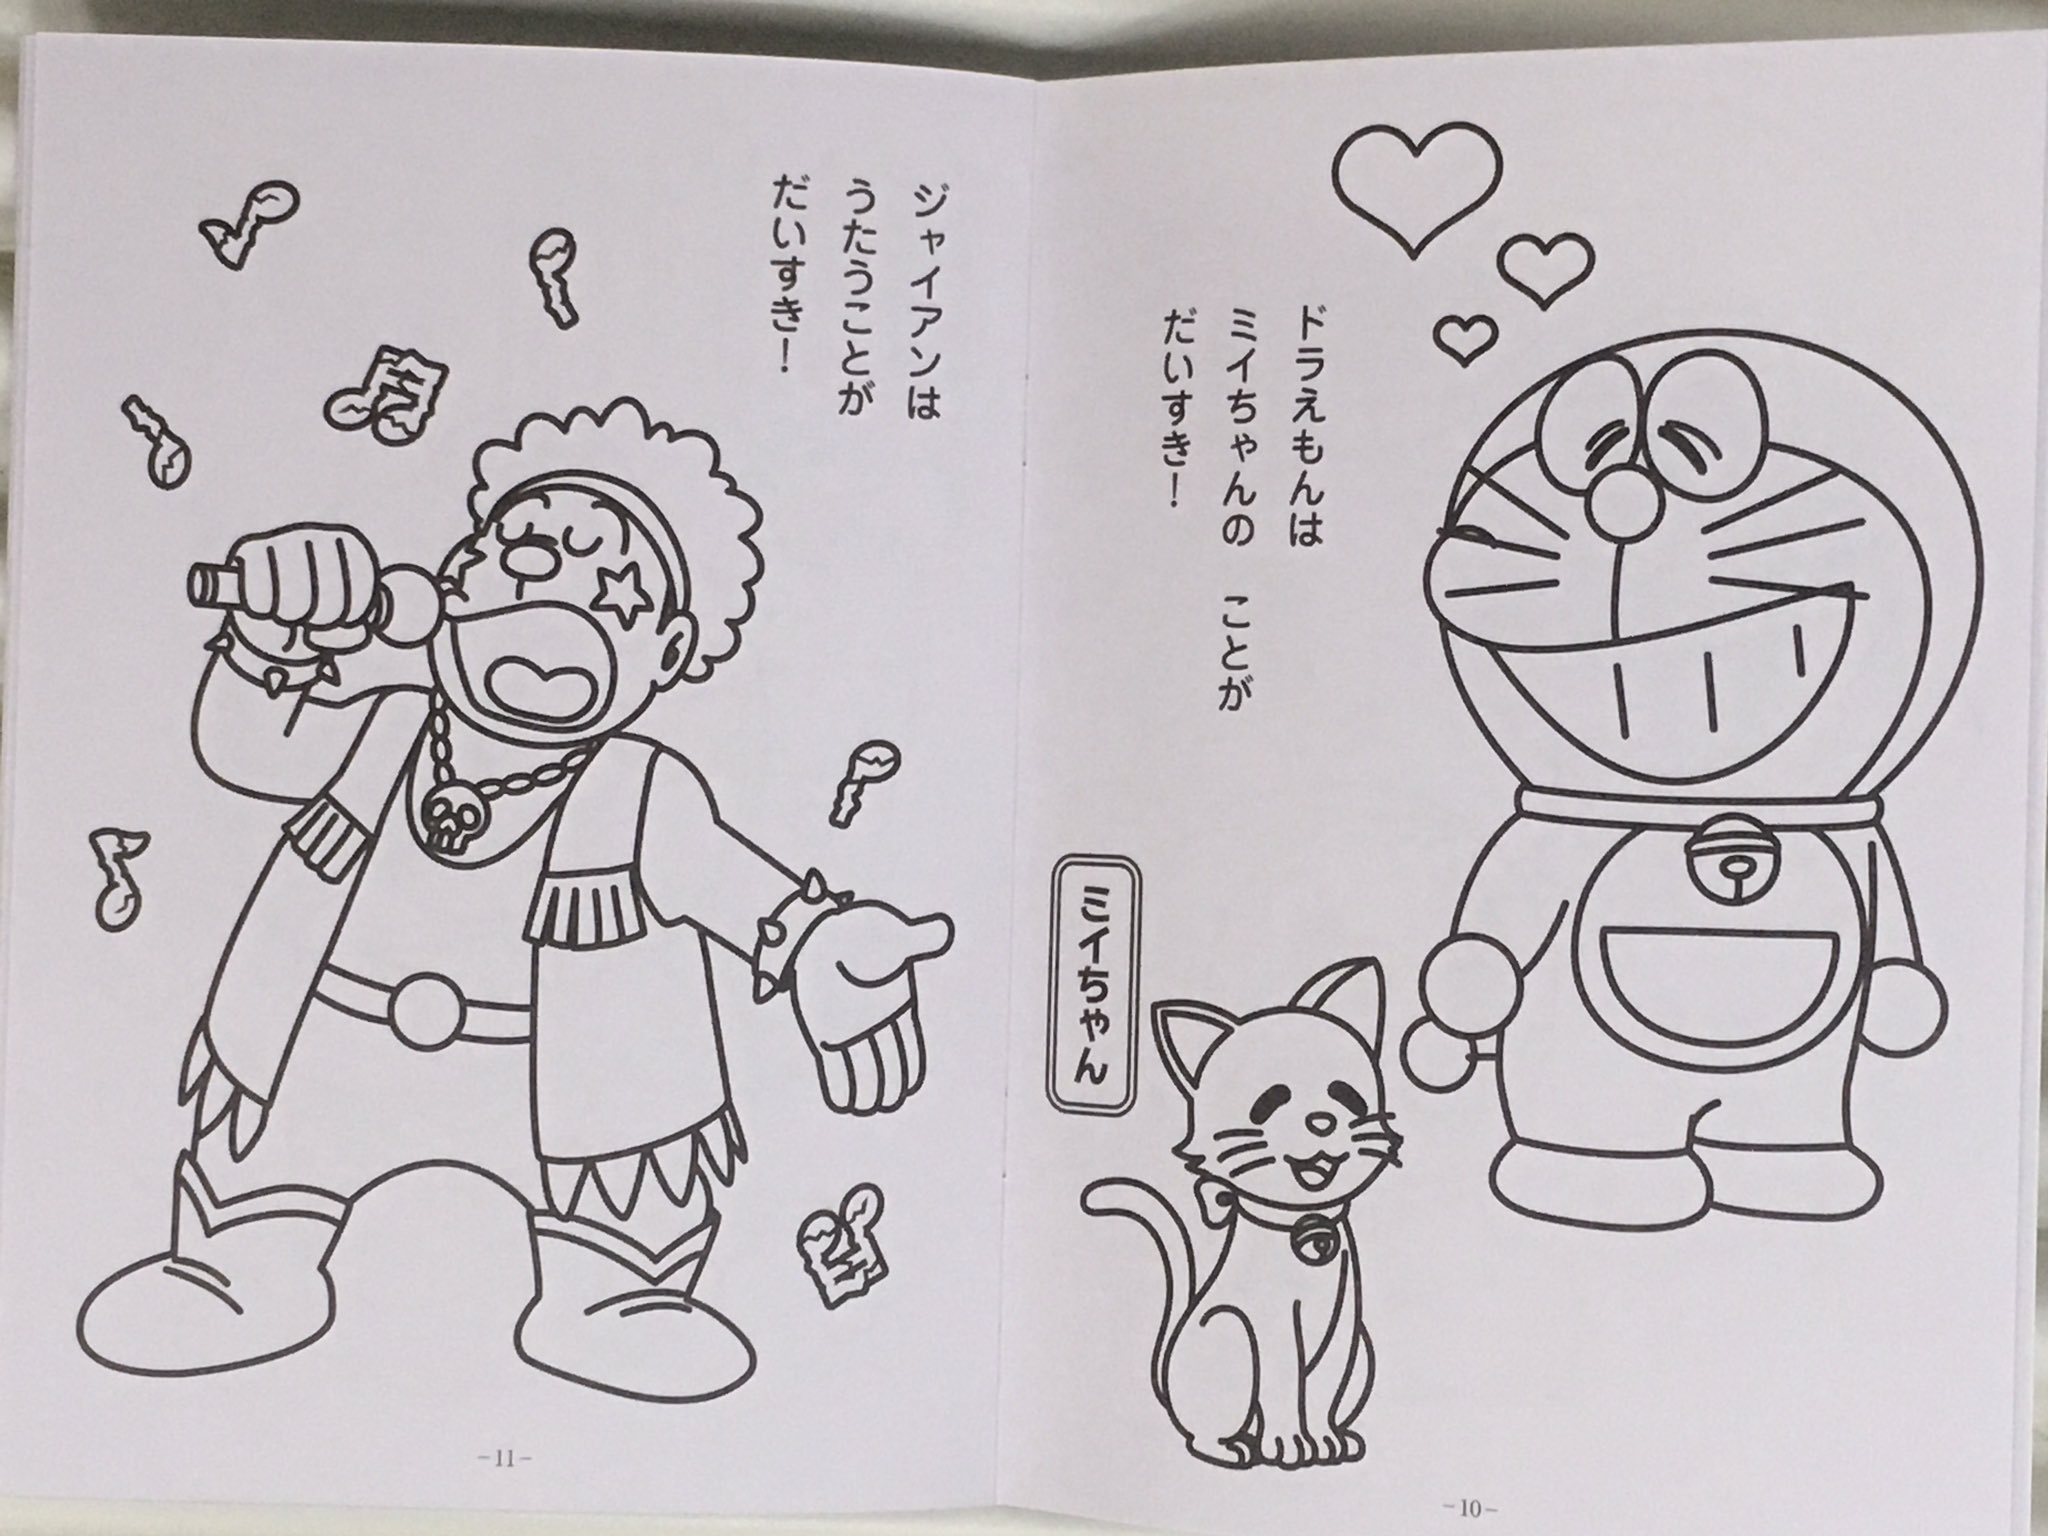 ドラえもんは
ミイちゃんの ことが
だいすき!
ミイちゃん
-10-
ジャイアンは
うたうことが
だいすき!
-11-